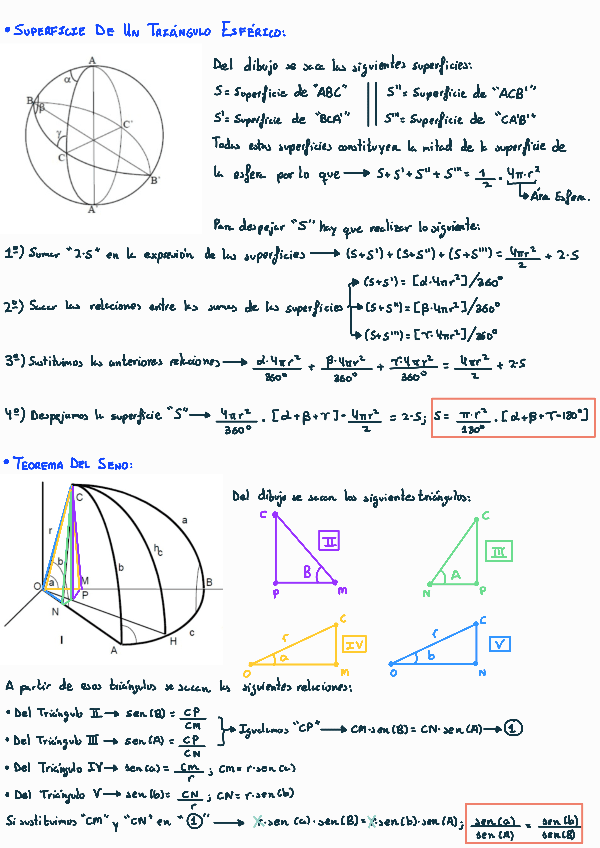 • SUPERFICIE DE UN TRIÁNGULO ESFÉRICO:
A
α
B
β
γ
C
C'
B'
A'
Del dibujo se saca las siguientes superficies:
S = Superficie de "ABC" || S'' = Superficie de "ACB'"
S' = Superficie de "BCA'" || S''' = Superficie de "CA'B'"
Todas estas superficies constituyen la mitad de la superficie de
la esfera por lo que → S+S'+S''+S''' = 1/2 · 4π·r²
↳ Área Esfera.
Para despejar "S" hay que realizar lo siguiente:
1º) Sumar "2·S" en la expresión de las superficies → (S+S') + (S+S'') + (S+S''') = 4πr²/2 + 2·S
→ (S+S') = [α·4πr²]/360°
2º) Sacar las relaciones entre las sumas de las superficies → (S+S'') = [β·4πr²]/360°
→ (S+S''') = [γ·4πr²]/360°
3º) Sustituimos las anteriores relaciones → α·4πr²/360° + β·4πr²/360° + γ·4πr²/360° = 4πr²/2 + 2·S
4º) Despejamos la superficie "S" → 4πr²/360° · [α+β+γ] - 4πr²/2 = 2·S; S = π·r²/180° · [α+β+γ-180°]
• TEOREMA DEL SENO:
C
a
r
b
h
c
b
O
a
M
P
B
N
I
A
H
c
Del dibujo se sacan los siguientes triángulos:
C
II
B
P
M
C
III
A
N
P
C
r
IV
a
O
M
C
r
V
b
O
N
A partir de esos triángulos se sacan las siguientes relaciones:
• Del Triángulo II → sen(B) = CP/CM
→ Igualamos "CP" → CM·sen(B) = CN·sen(A) → ①
• Del Triángulo III → sen(A) = CP/CN
• Del Triángulo IV → sen(a) = CM/r ; CM = r·sen(a)
• Del Triángulo V → sen(b) = CN/r ; CN = r·sen(b)
Si sustituimos "CM" y "CN" en "①" → r·sen(a)·sen(B) = r·sen(b)·sen(A); sen(a)/sen(A) = sen(b)/sen(B)